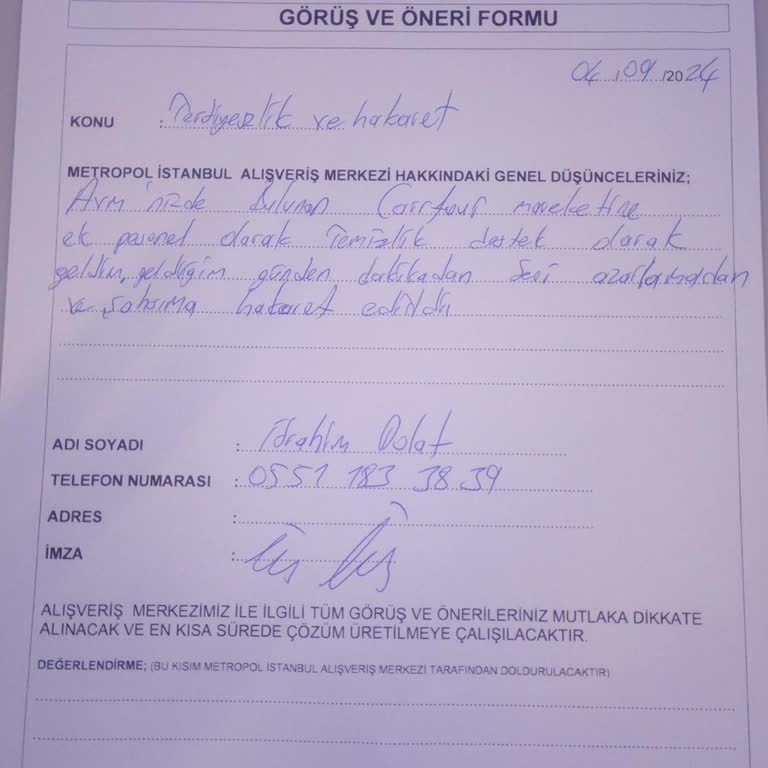 GÖRÜŞ VE ÖNERİ FORMU
04/09/2024
KONU : Terdiyesizlik ve hakaret
METROPOL İSTANBUL ALIŞVERİŞ MERKEZİ HAKKINDAKİ GENEL DÜŞÜNCELERİNİZ;
Avm'nizde bulunan Carrfour mareketine
ek pesonel olarak Temizlik destek olarak
geldim, geldiğim günden dakikadan beri azarlamadan
ve şahsıma hakaret edildi
ADI SOYADI : İbrahim Polat
TELEFON NUMARASI : 0551 183 38 39
ADRES :
İMZA :
ALIŞVERİŞ MERKEZİMİZ İLE İLGİLİ TÜM GÖRÜŞ VE ÖNERİLERİNİZ MUTLAKA DİKKATE
ALINACAK VE EN KISA SÜREDE ÇÖZÜM ÜRETİLMEYE ÇALIŞILACAKTIR.
DEĞERLENDİRME; (BU KISIM METROPOL İSTANBUL ALIŞVERİŞ MERKEZİ TARAFINDAN DOLDURULACAKTIR)